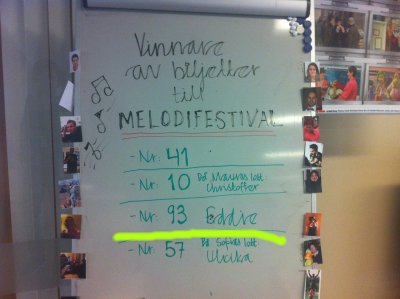 Vinnare
av biljetter
till
MELODIFESTIVAL
- Nr: 41
- Nr: 10 På Maurias lott: Christoffer
- Nr: 93 Eddie
- Nr: 57 På Sofias lott: Ulrika